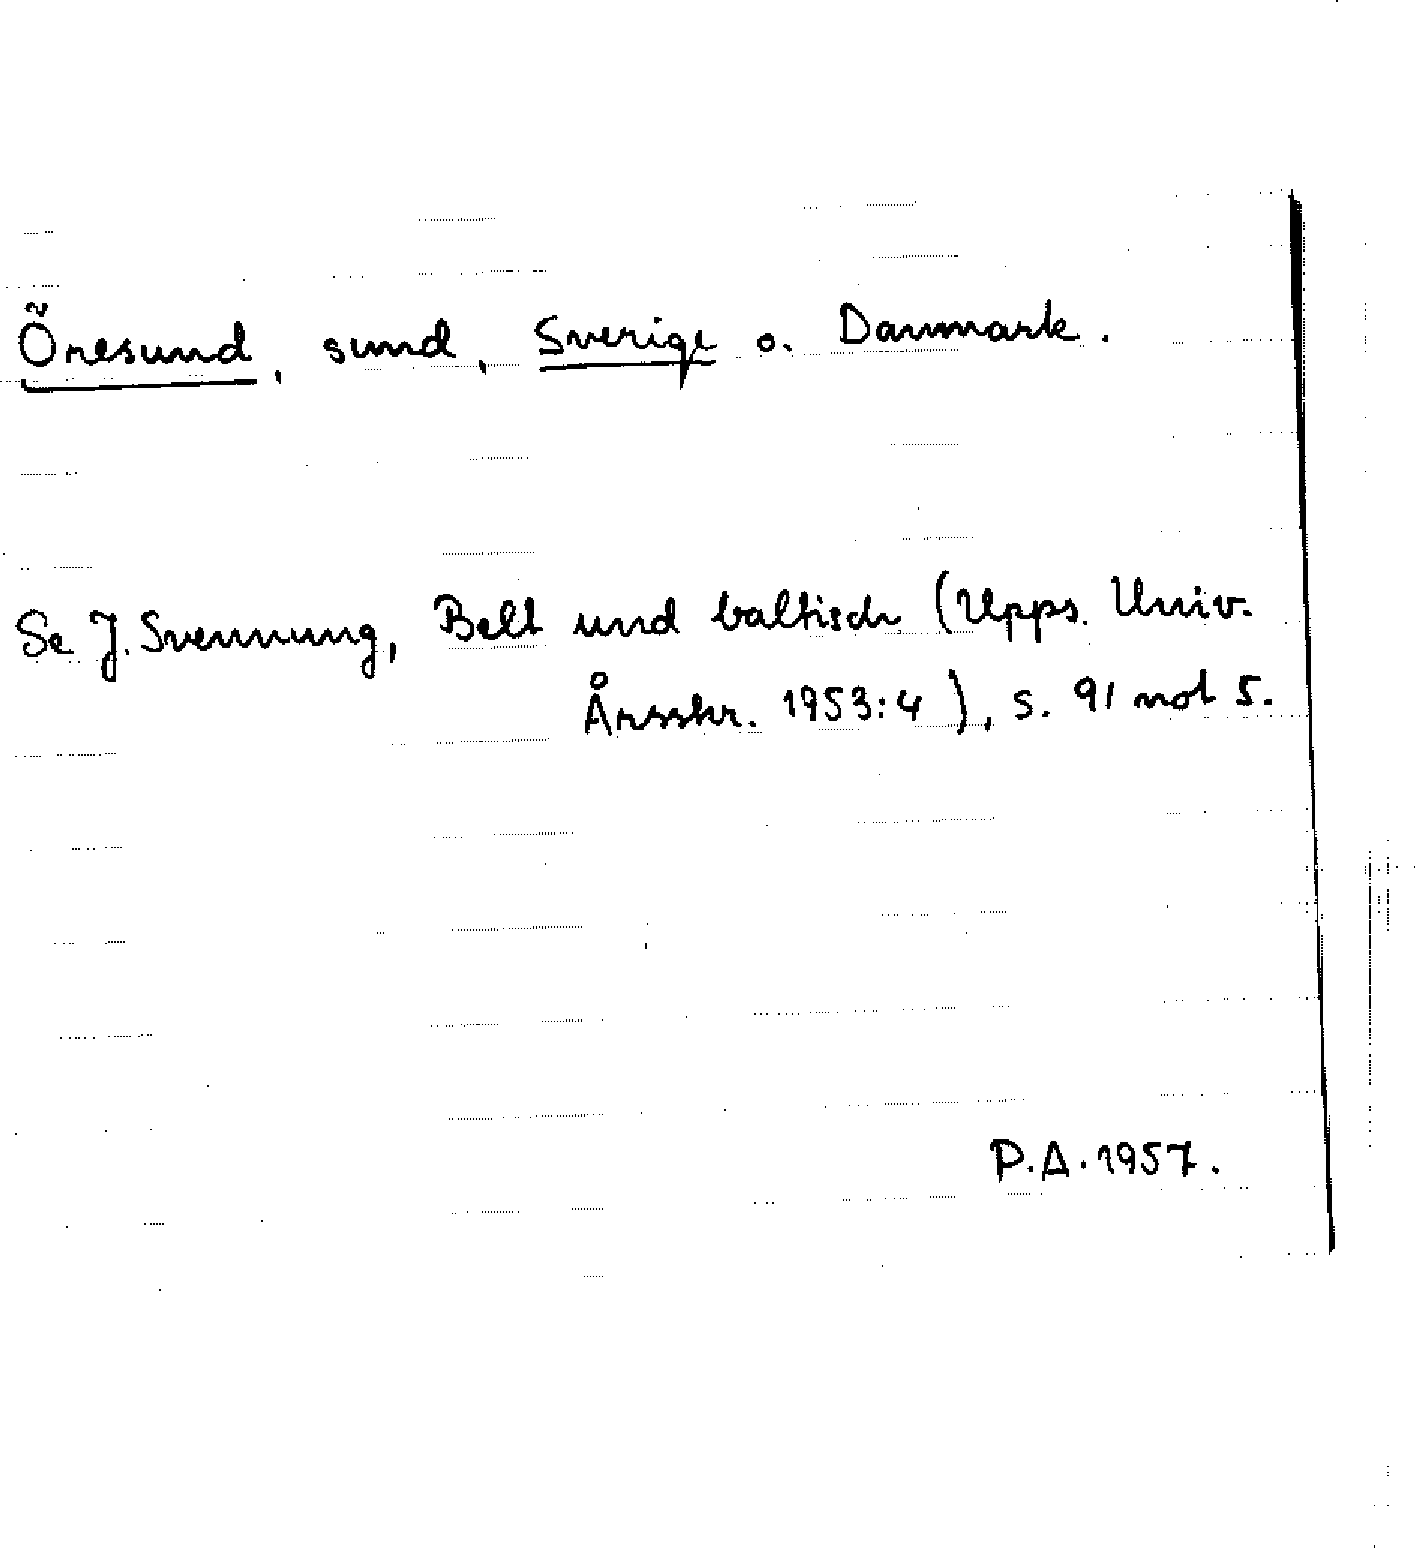 Öresund, sund, Sverige o. Danmark.
Se J. Svennung, Belt und baltisch (Upps. Univ.
Årsskr. 1953:4), s. 91 not 5.
P.A. 1957.